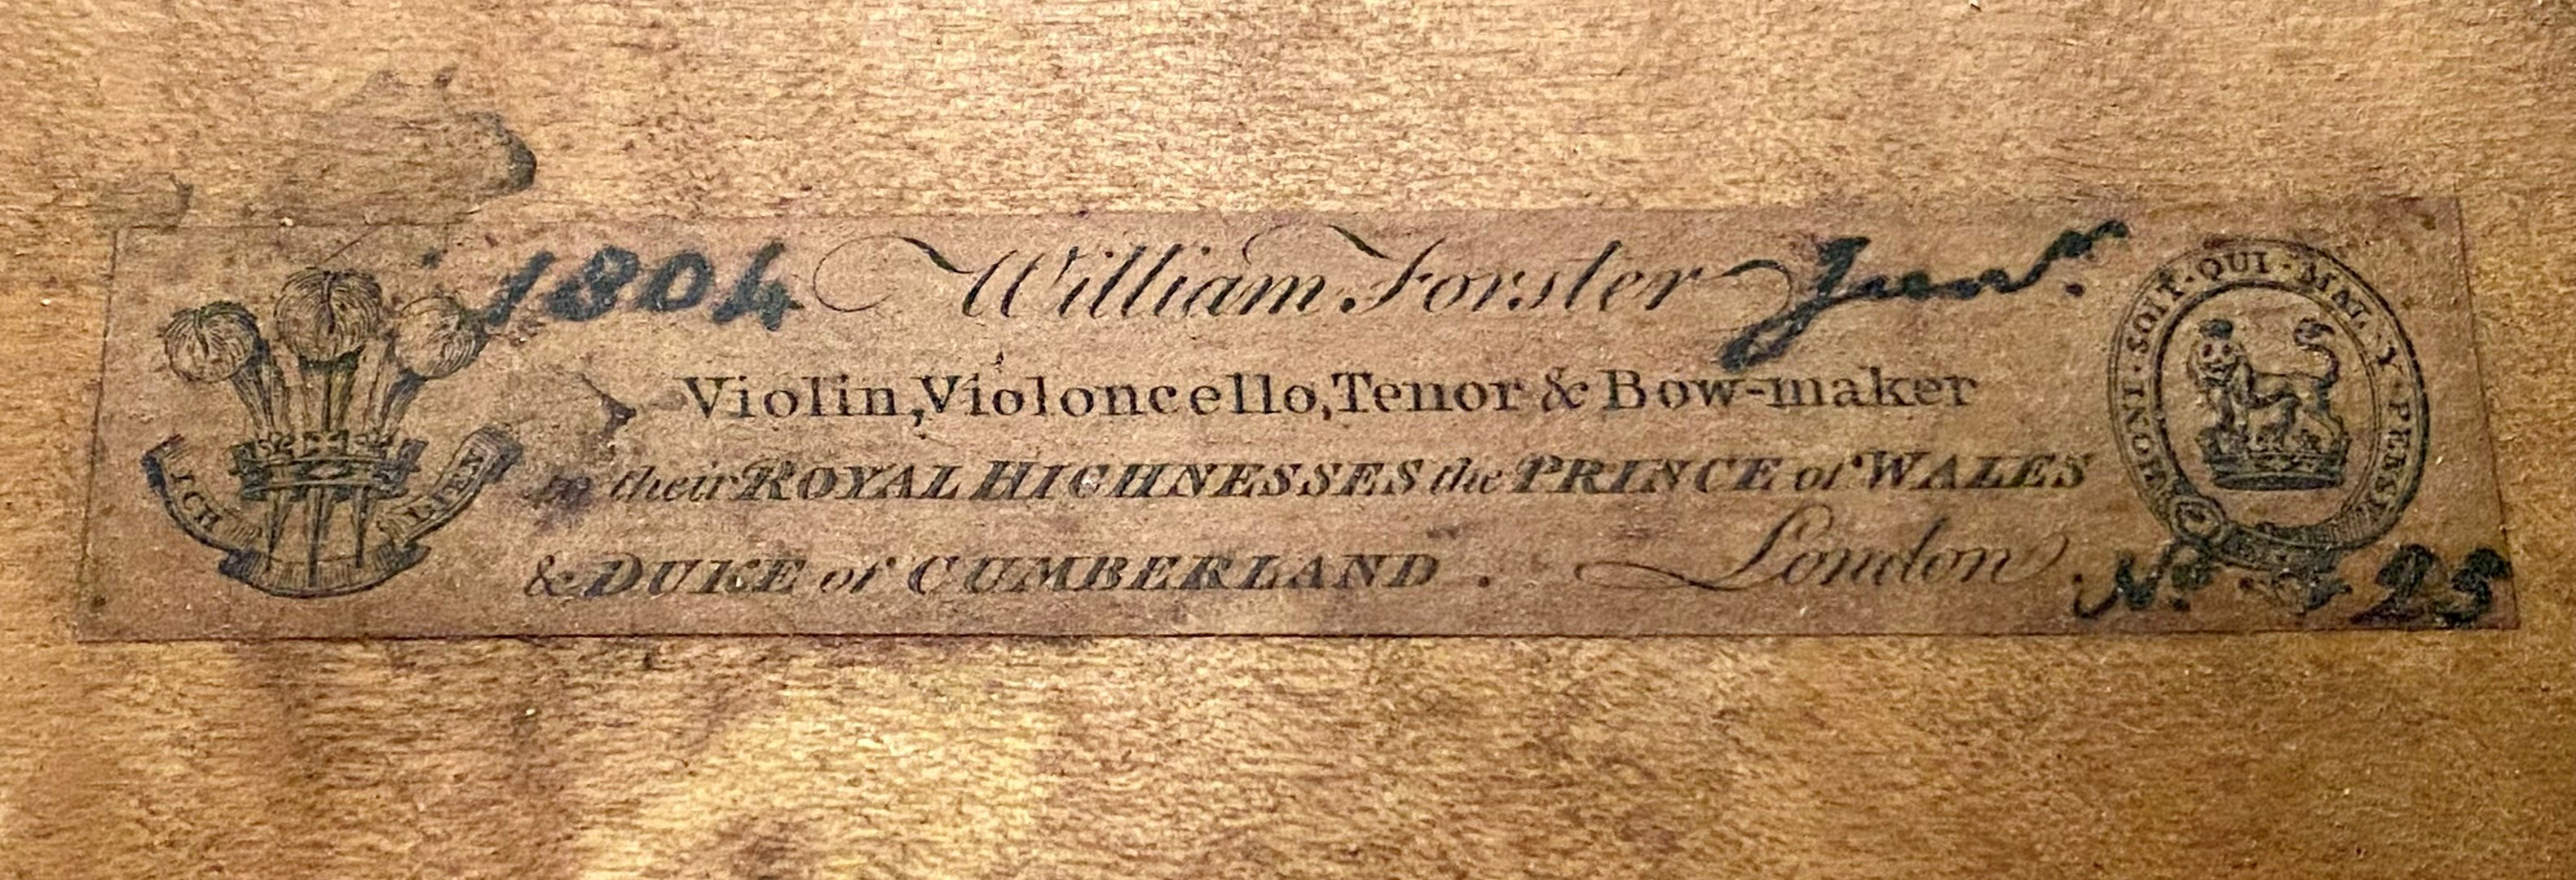 1804 William Forster Junr.
Violin, Violoncello, Tenor & Bow-maker
to their ROYAL HIGHNESSES the PRINCE of WALES
& DUKE of CUMBERLAND. London. No. 25
ICH DIEN
HONI·SOIT·QUI·MAL·Y·PENSE